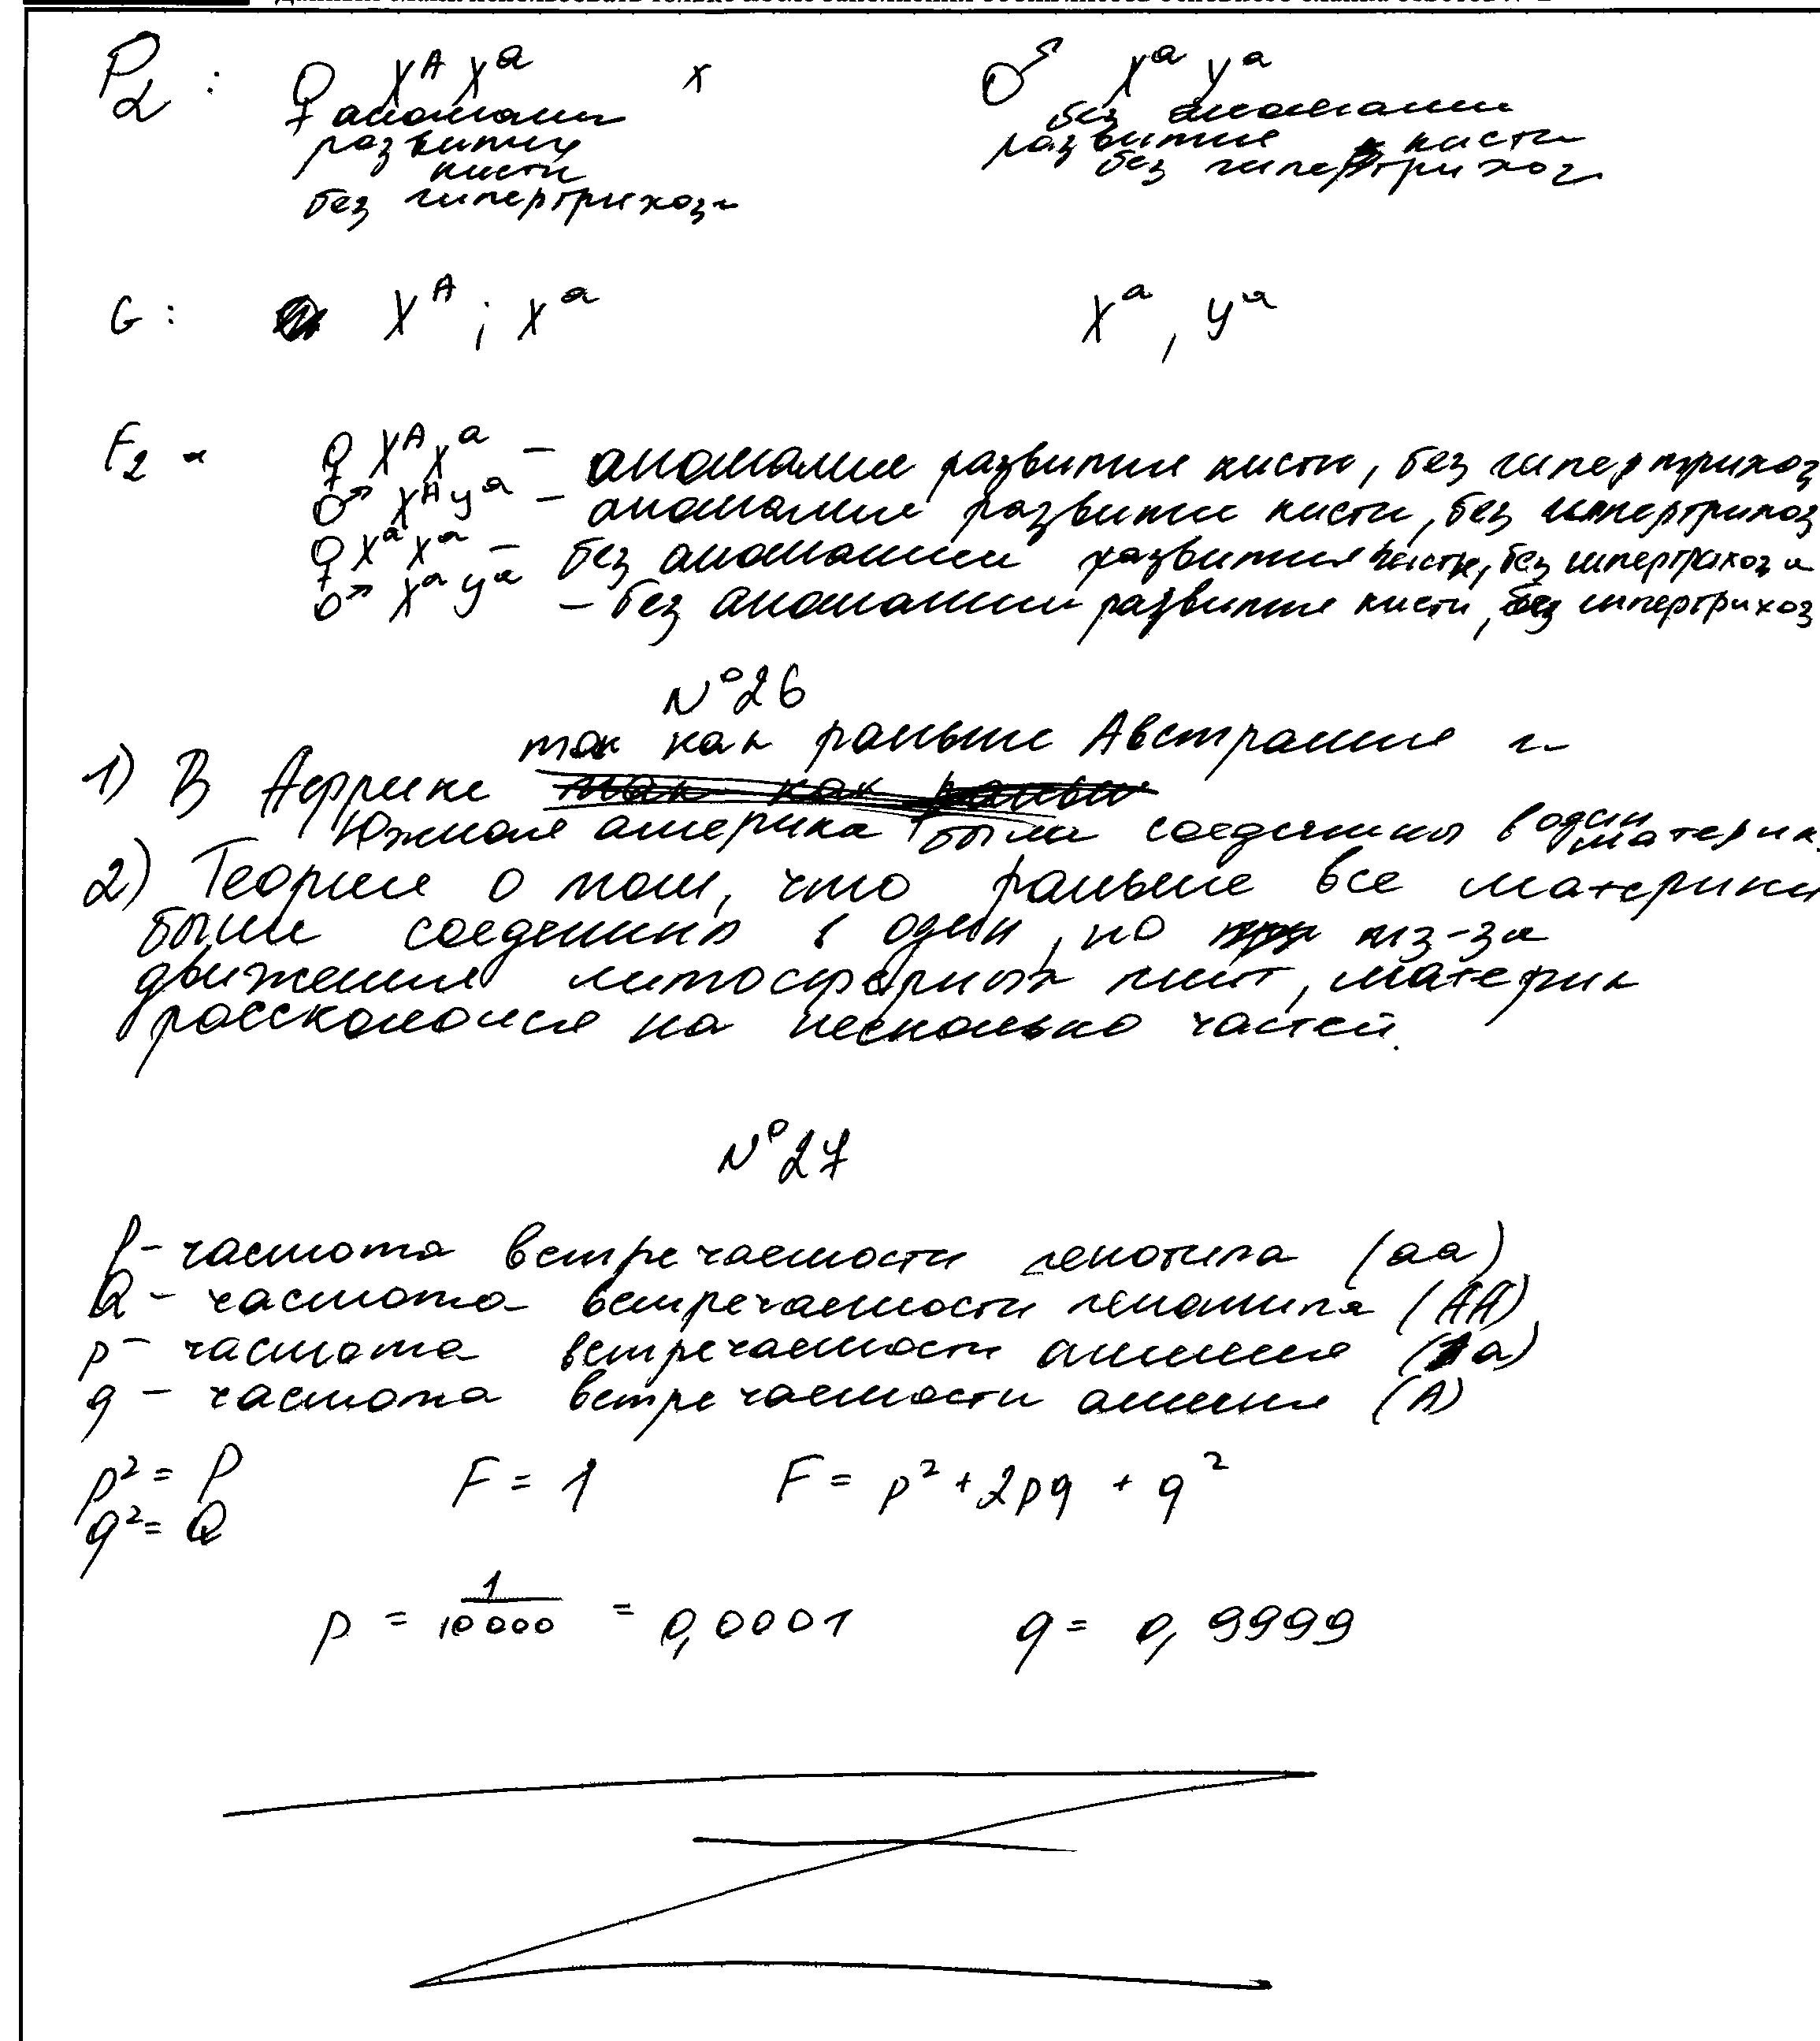 P2 : ♀ X^A X^a x ♂ X^a Y^a
аномалии без аномалии
развития развитие кисти
кисти без гипертрихоз
без гипертрихоза
G : X^A ; X^a X^a , y^a
F2 - ♀ X^A X^a – аномалие развитие кисти, без гипертрихоз
♂ X^A y^a – аномалие развитие кисти, без гипертрихоз
♀ X^a X^a – без аномалии развития кисти, без гипертрихоза
♂ X^a y^a – без аномалии развитие кисти, без гипертрихоз
№26
так как раньше Австралие и
1) В Аффрике так как раньш
Южная америка были соеденины в один материк.
2) Теорие о том, что раньше все материки
были соеденины в один, но из-за
движения литосферных плит, материк
росскололся на несколько частей.
№27
P – частота встречаемости генотипа (aa)
Q – частота встречаемости генотипа (AA)
p – частота встречаемости аллеля (a)
q – частота встречаемости аллеля (A)
p² = P F = 1 F = p² + 2pq + q²
q² = Q
p = 1/10000 = 0,0001 q = 0,9999